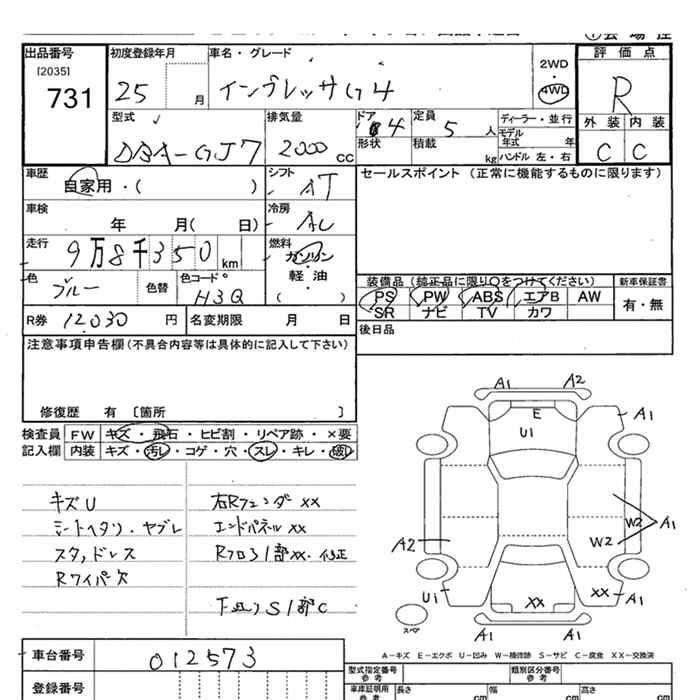 出品番号
[2035]
731
初度登録年月
25 月
車名・グレード
インプレッサG4
2WD
4WD
評価点
R
型式
DBA-GJ7
排気量
2000 CC
ドア
4
定員
5 人
形状
積載
kg
ディーラー・並行
モデル年式 年
ハンドル 左・右
外装 内装
C C
車歴
自家用・( )
シフト
AT
セールスポイント (正常に機能するものに限ります)
車検
年 月( 日)
冷房
AC
走行
9万8千350 km
燃料
ガソリン
軽・油
( )
色
ブルー
色替
色コード
H3Q
装備品 (純正品に限り○をつけてください)
新車保証書
PS PW ABS エアB AW
SR ナビ TV カワ
有・無
R券 12030 円
名変期限 月 日
後日品
注意事項申告欄(不具合内容等は具体的に記入して下さい)
修復歴 有 〔箇所 〕
検査員記入欄
FW キズ・飛石・ヒビ割・リペア跡・×要
内装 キズ・汚レ・コゲ・穴・スレ・キレ・破レ
キズU
シートヘタリ・ヤブレ
スタッドレス
Rワイパー欠
右Rフェンダ XX
エンドパネル XX
Rフロア1部XX. 修正
S1部C
A1 A2
E
U1
A1
A2
W2
W2
A1
U1
XX
XX
A1
A1 A1
スペア
A-キズ E-エクボ U-凹み W-補修跡 S-サビ C-腐食 XX-交換済
車台番号
012573
登録番号
型式指定番号
参考
類別区分番号
参考
車庫証明用
参考
長さ cm
幅 cm
高さ cm